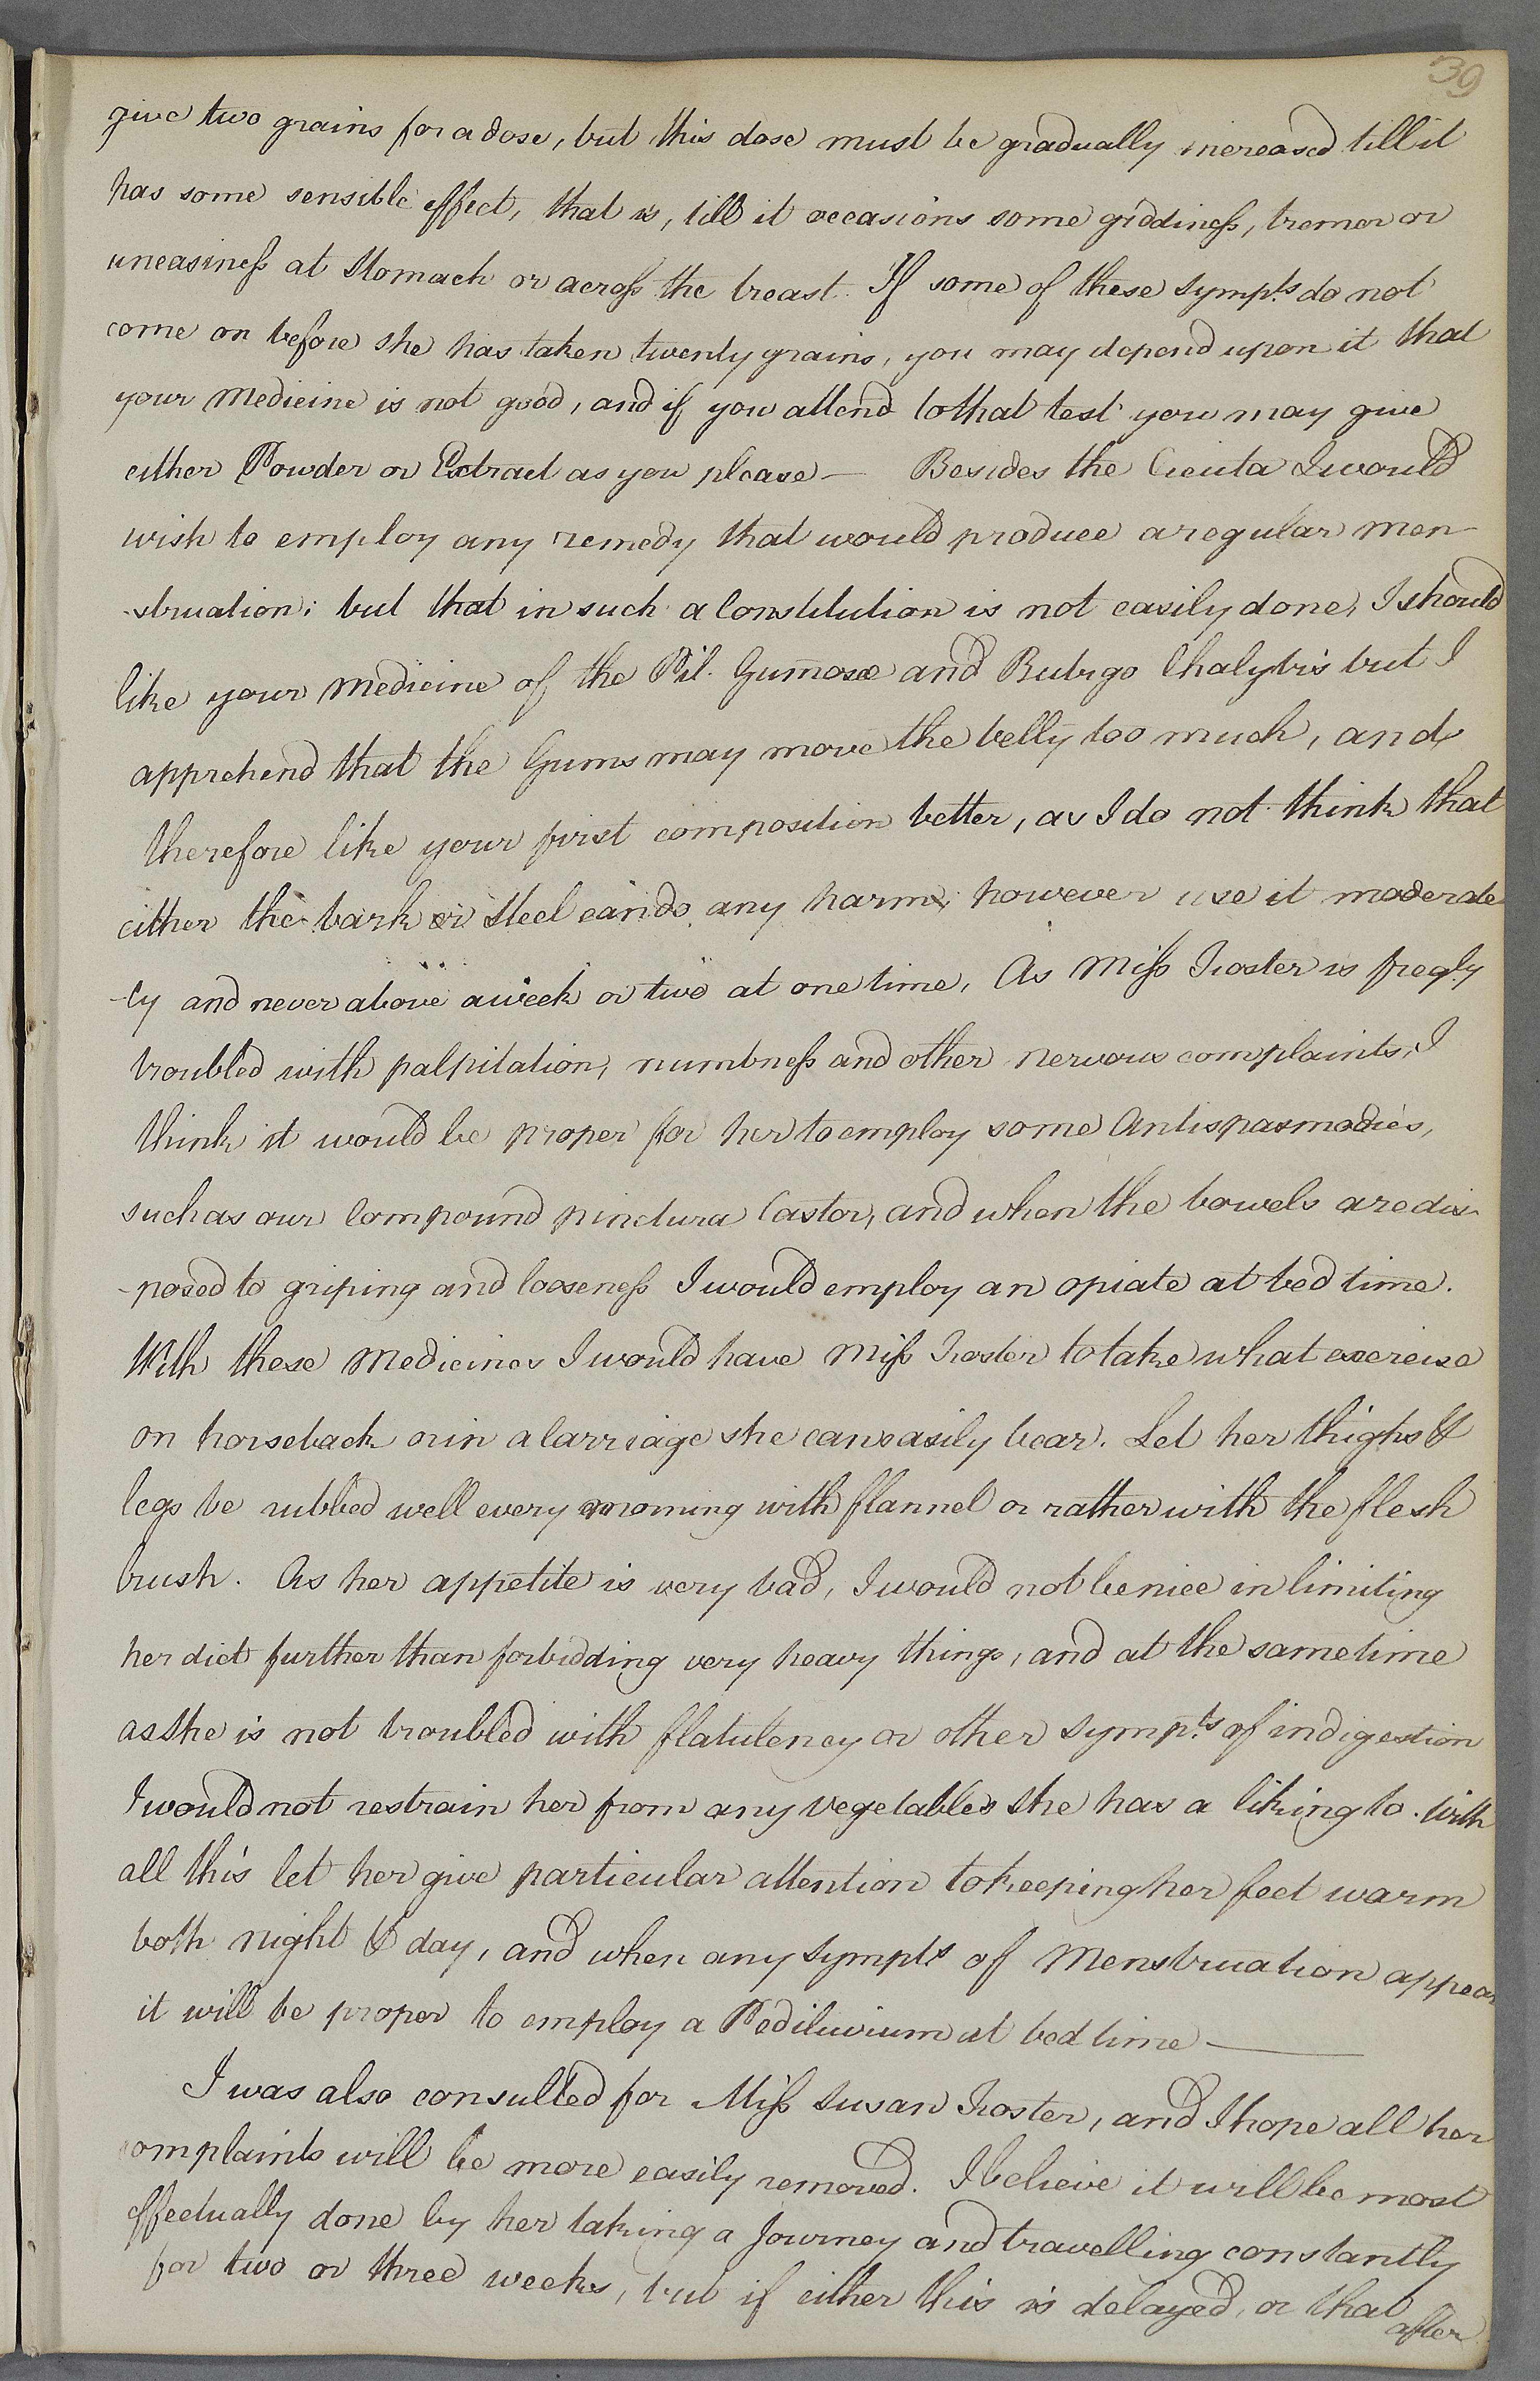 39
give two grains for a dose, but this dose must be gradually increased till it
has some sensible effect, that is, till it occasions some giddiness, tremor or
uneasiness at Stomach or across the breast. If some of these Sympts do not
come on before she has taken twenty grains, you may depend upon it that
your Medicine is not good, and if you attend to that test you may give
either Powder or Extract as you please — Besides the Cicuta I would
wish to employ any remedy that would produce a regular men
-struation; but that in such a Constitution is not easily done, I should
like your medicine of the Pil. Gumosæ and Rubigo Chalybis but I
apprehend that the Gums may move the belly too much, and
therefore like your first composition better, as I do not think that
either the bark or Steel can do any harm, however use it moderate
-ly and never above a week or two at one time, As Miss Troster is freqly
troubled with palpitation, numbness and other nervous complaints, I
think it would be proper for her to employ some Antispasmodics,
such as our Compound pinctura Castor, and when the bowels are dis-
-posed to griping and looseness I would employ an opiate at bed time.
With these Medicines I would have Miss Troster to take what exercise
on horseback or in a Carriage she can easily bear. Let her thighs &
legs be rubbed well every morning with flannel or rather with the flesh
brush. As her appetite is very bad, I would not be nice in limiting
her diet further than forbidding very heavy things, and at the same time
as she is not troubled with flatulency or other Sympts of indigestion
I would not restrain her from any vegetables she has a liking to. With
all this let her give particular attention to keeping her feet warm
both night & day, and when any Sympts of Menstruation appear
it will be proper to employ a Pediluvium at bed time —
I was also consulted for Miss Susan Troster, and I hope all her
complaints will be more easily removed. I believe it will be most
effectually done by her taking a Journey and travelling constantly
for two or three weeks, but if either this is delayed, or that
after